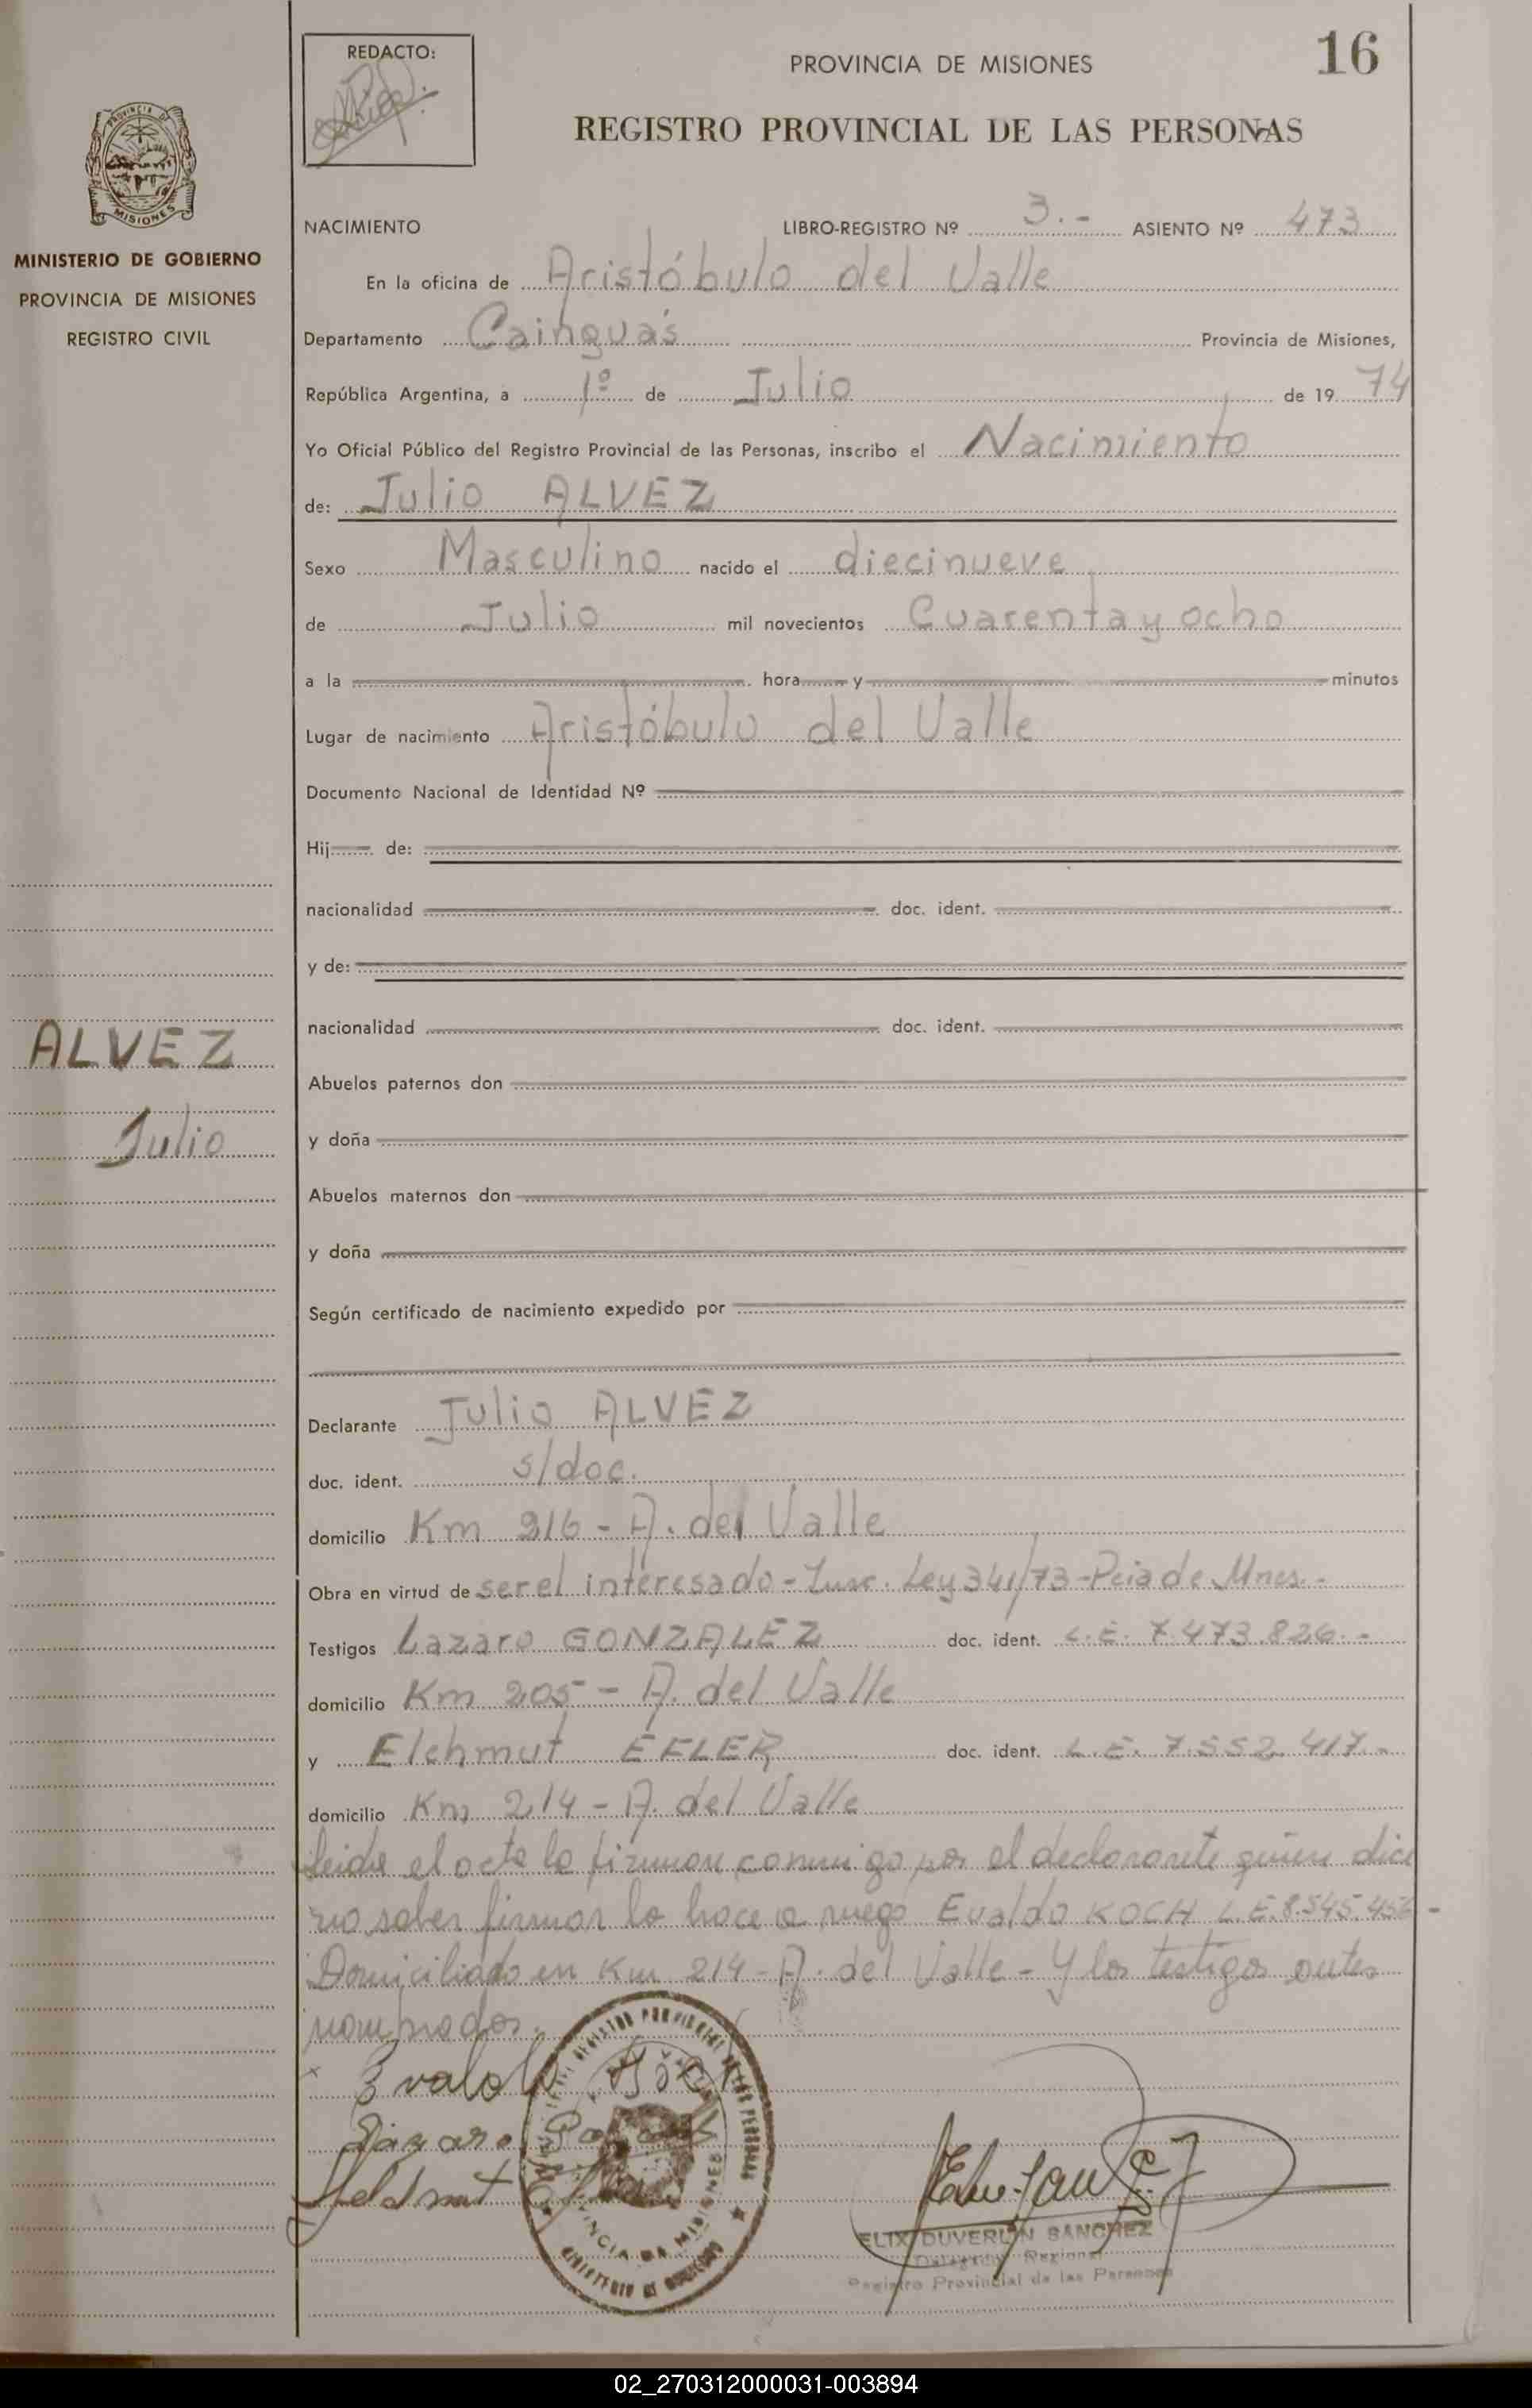 REDACTO:
PROVINCIA DE MISIONES
16
REGISTRO PROVINCIAL DE LAS PERSONAS
PROVINCIA DE
MISIONES
MINISTERIO DE GOBIERNO
PROVINCIA DE MISIONES
REGISTRO CIVIL
NACIMIENTO LIBRO-REGISTRO Nº 3.- ASIENTO Nº 473
En la oficina de Aristóbulo del Valle
Departamento Cainguás Provincia de Misiones,
República Argentina, a 1º de Julio de 19 74
Yo Oficial Público del Registro Provincial de las Personas, inscribo el Nacimiento
de: Julio ALVEZ
Sexo Masculino nacido el diecinueve
de Julio mil novecientos Cuarenta y ocho
a la hora y minutos
Lugar de nacimiento Aristóbulo del Valle
Documento Nacional de Identidad Nº
Hij de:
nacionalidad doc. ident.
y de:
nacionalidad doc. ident.
ALVEZ
Julio
Abuelos paternos don
y doña
Abuelos maternos don
y doña
Según certificado de nacimiento expedido por
Declarante Julio ALVEZ
doc. ident. s/doc.
domicilio Km 216 - A. del Valle
Obra en virtud de ser el interesado - Insc. Ley 341/73 - Pcia de Mnes.-
Testigos Lazaro GONZALEZ doc. ident. L.E. 7.473.826.-
domicilio Km 205 - A. del Valle
y Elehmut EFLER doc. ident. L.E. 7.552.417.-
domicilio Km 214 - A. del Valle
Leida el acta la firman conmigo por el declarante quien dice
no saber firmar lo hace a ruego Evaldo KOCH L.E. 8.545.456 -
Domiciliado en Km 214 - A. del Valle - Y los testigos antes
nombrados.
Evaldo Koch
Lazaro
Heldmut
DUVERLIN SANCHEZ
Delegado Regional
Registro Provincial de las Personas
02_270312000031-003894